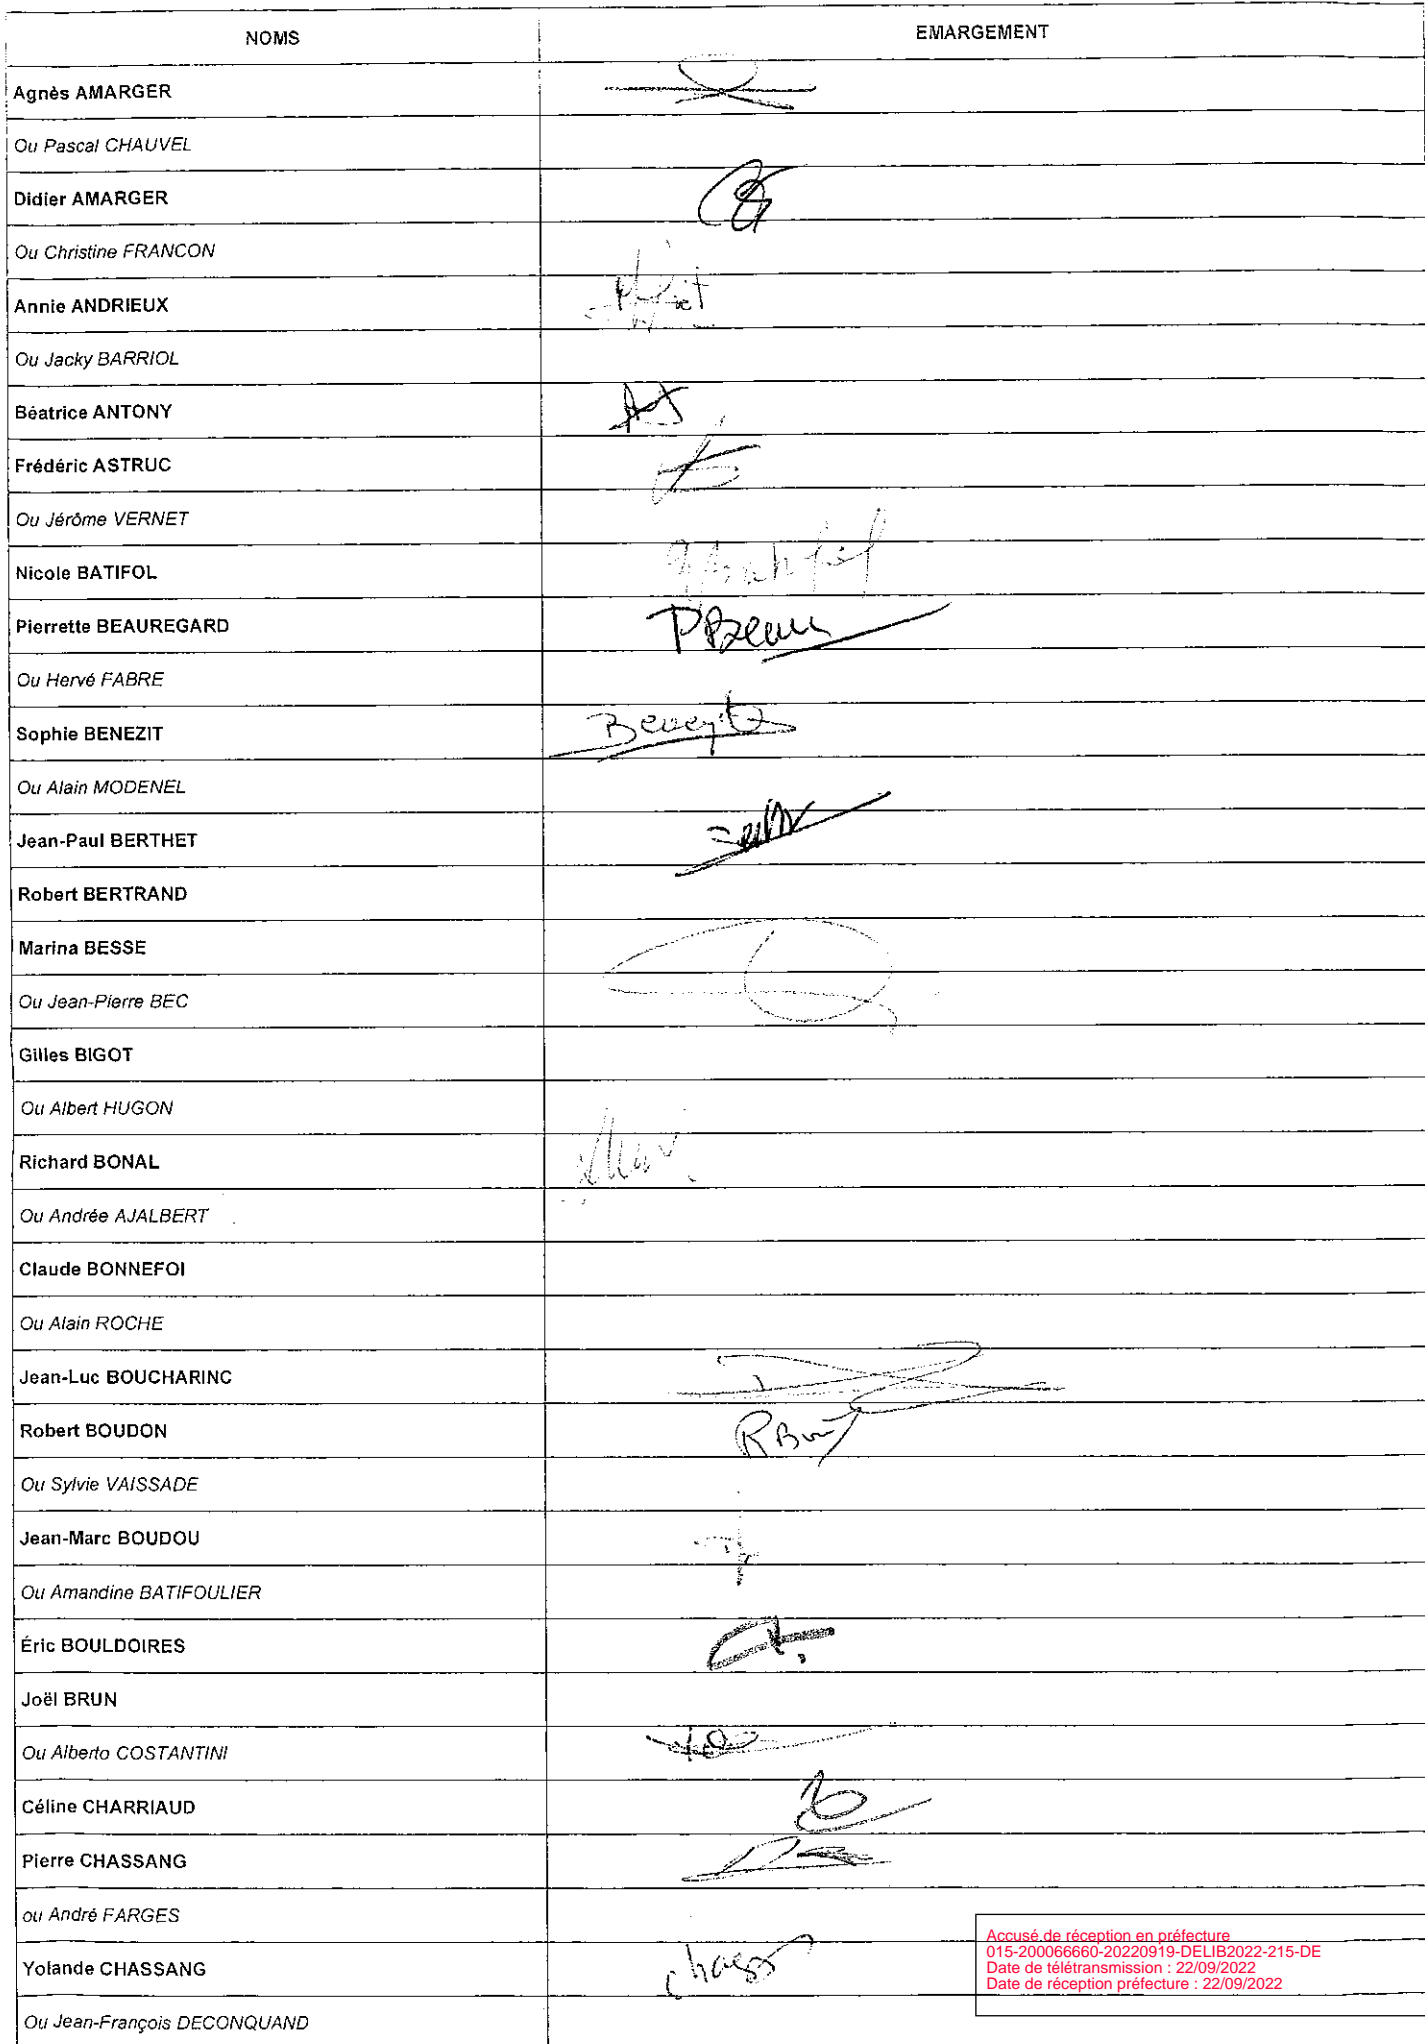 NOMS EMARGEMENT
Agnès AMARGER
Ou Pascal CHAUVEL
Didier AMARGER
Ou Christine FRANCON
Annie ANDRIEUX
Ou Jacky BARRIOL
Béatrice ANTONY
Frédéric ASTRUC
Ou Jérôme VERNET
Nicole BATIFOL
Pierrette BEAUREGARD
Ou Hervé FABRE
Sophie BENEZIT
Ou Alain MODENEL
Jean-Paul BERTHET
Robert BERTRAND
Marina BESSE
Ou Jean-Pierre BEC
Gilles BIGOT
Ou Albert HUGON
Richard BONAL
Ou Andrée AJALBERT
Claude BONNEFOI
Ou Alain ROCHE
Jean-Luc BOUCHARINC
Robert BOUDON
Ou Sylvie VAISSADE
Jean-Marc BOUDOU
Ou Amandine BATIFOULIER
Éric BOULDOIRES
Joël BRUN
Ou Alberto COSTANTINI
Céline CHARRIAUD
Pierre CHASSANG
ou André FARGES
Yolande CHASSANG
Ou Jean-François DECONQUAND
Accusé de réception en préfecture
015-200066660-20220919-DELIB2022-215-DE
Date de télétransmission : 22/09/2022
Date de réception préfecture : 22/09/2022